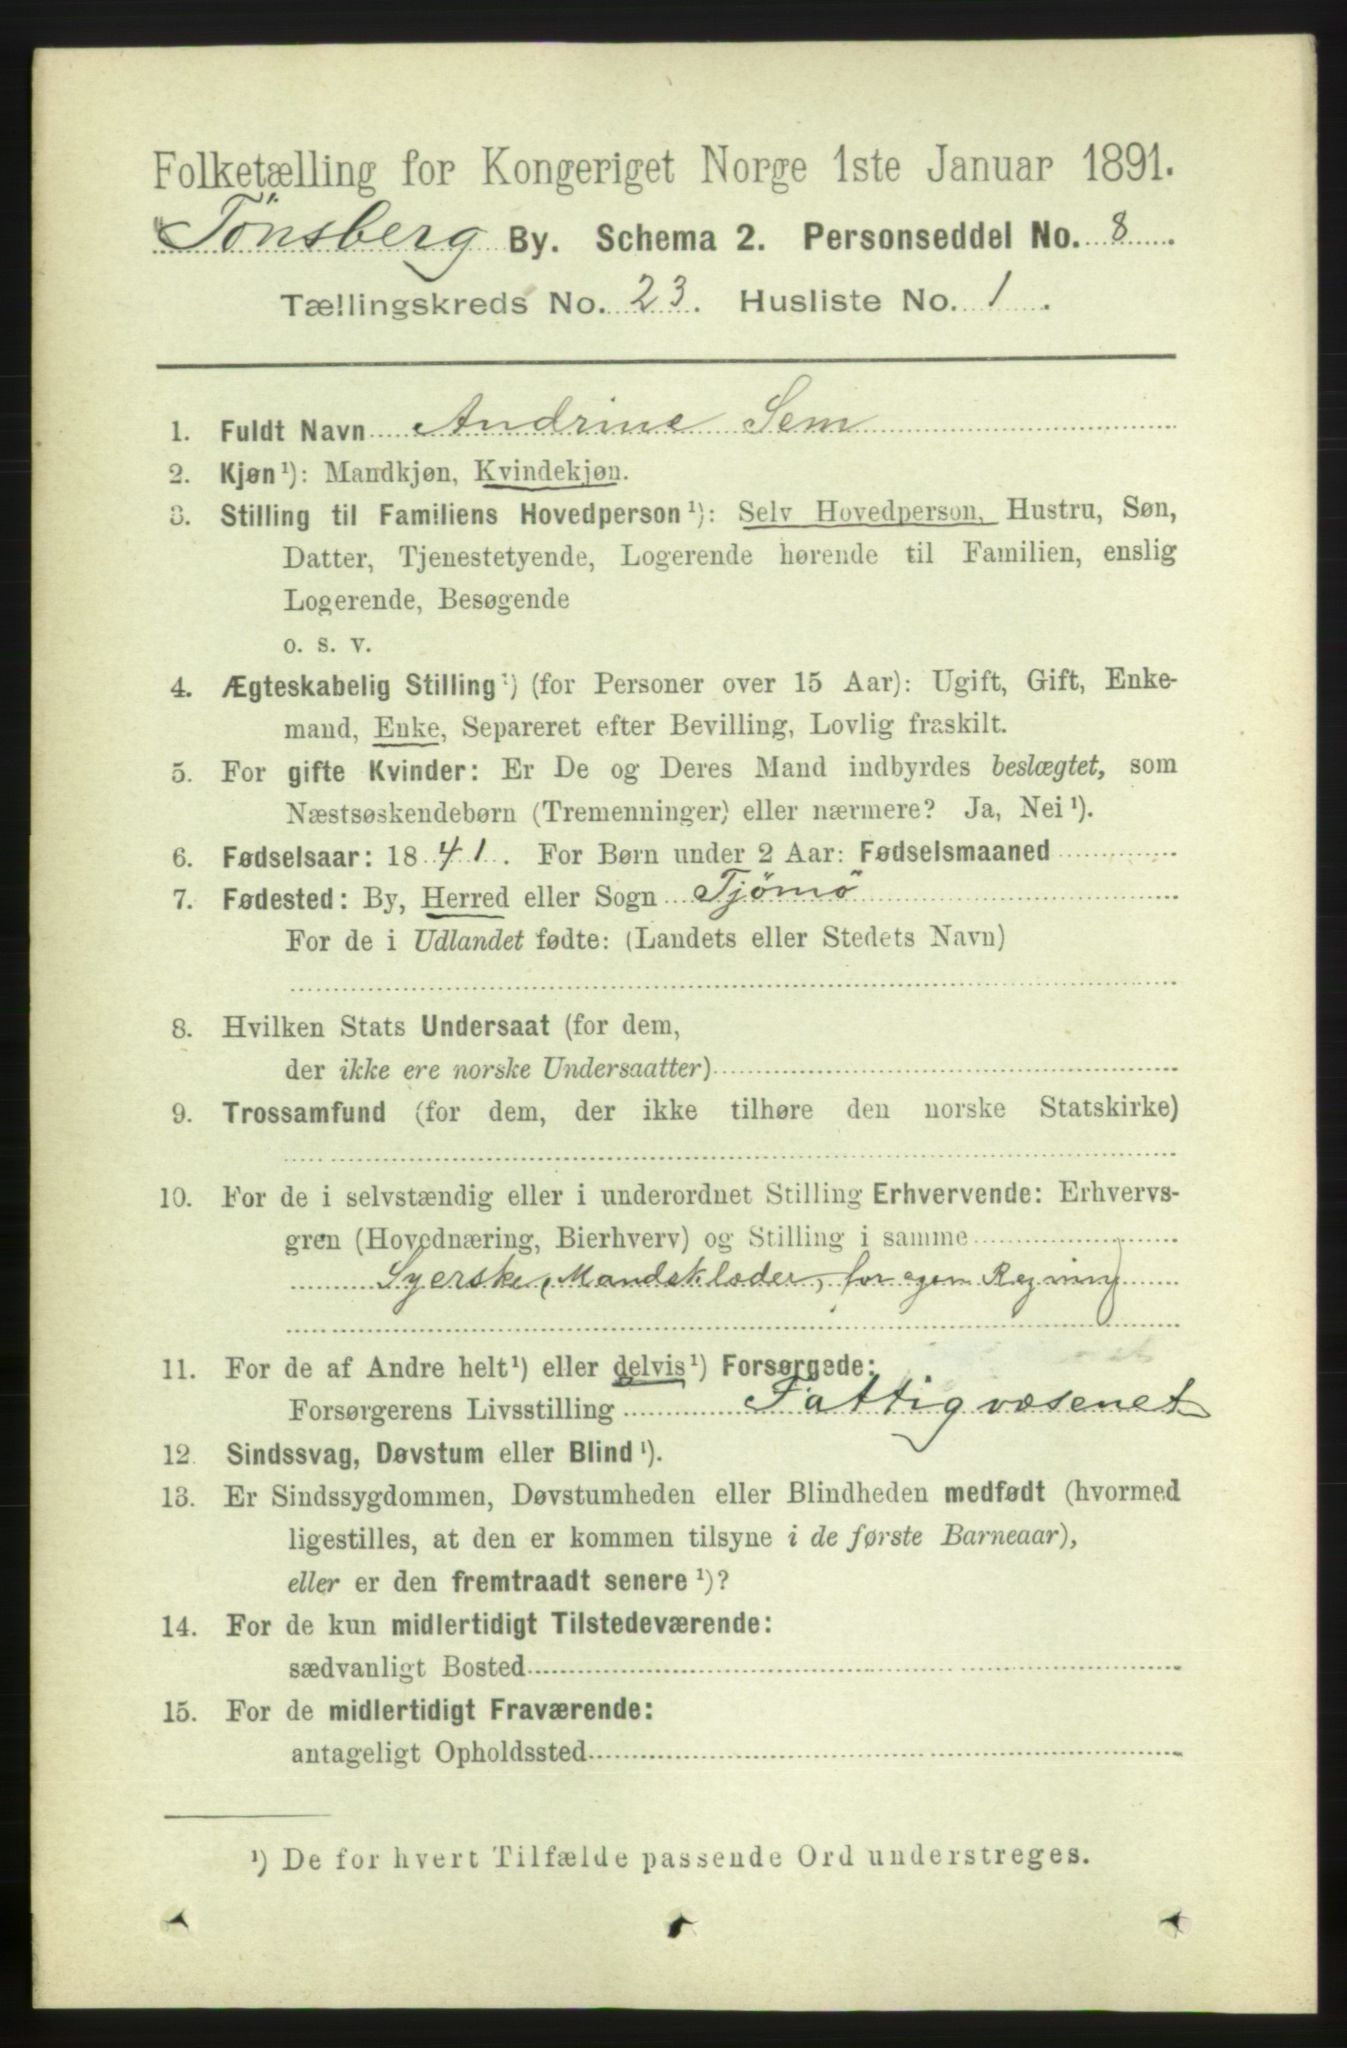 Folketælling for Kongeriget Norge 1ste Januar 1891.
Tønsberg By. Schema 2. Personseddel No. 8.
Tællingskreds No. 23. Husliste No. 1.
1. Fuldt Navn Andrine Sem
2. Kjøn¹): Mandkjøn, Kvindekjøn.
3. Stilling til Familiens Hovedperson¹): Selv Hovedperson, Hustru, Søn,
Datter, Tjenestetyende, Logerende hørende til Familien, enslig
Logerende, Besøgende
o. s. v.
4. Ægteskabelig Stilling¹) (for Personer over 15 Aar): Ugift, Gift, Enke-
mand, Enke, Separeret efter Bevilling, Lovlig fraskilt.
5. For gifte Kvinder: Er De og Deres Mand indbyrdes beslægtet, som
Næstsøskendebørn (Tremenninger) eller nærmere? Ja, Nei¹).
6. Fødselsaar: 1841. For Børn under 2 Aar: Fødselsmaaned
7. Fødested: By, Herred eller Sogn Tjömö
For de i Udlandet fødte: (Landets eller Stedets Navn)
8. Hvilken Stats Undersaat (for dem,
der ikke ere norske Undersaatter)
9. Trossamfund (for dem, der ikke tilhøre den norske Statskirke)
10. For de i selvstændig eller i underordnet Stilling Erhvervende: Erhvervs-
gren (Hovednæring, Bierhverv) og Stilling i samme
Syerske, Mandsklæder, for egen Regning
11. For de af Andre helt¹) eller delvis¹) Forsørgede:
Forsørgerens Livsstilling Fattigvæsenet
12. Sindssvag, Døvstum eller Blind¹).
13. Er Sindssygdommen, Døvstumheden eller Blindheden medfødt (hvormed
ligestilles, at den er kommen tilsyne i de første Barneaar),
eller er den fremtraadt senere¹)?
14. For de kun midlertidigt Tilstedeværende:
sædvanligt Bosted
15. For de midlertidigt Fraværende:
antageligt Opholdssted
¹) De for hvert Tilfælde passende Ord understreges.